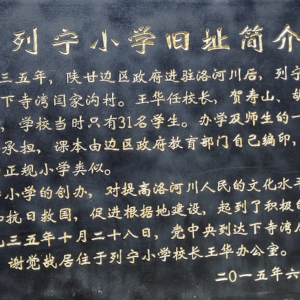 列宁小学旧址简介
三五年，陕甘边区政府进驻洛河川后，列宁
下寺湾闫家沟村。王华任校长，贺寿山、胡
，学校当时只有31名学生。办学及师生的一
承担，课本由边区政府教育部门自己编印，
正规小学类似。
小学的创办，对提高洛河川人民的文化水平
和抗日救国，促进根据地建设，起到了积极的
三五年十月二十八日，党中央到达下寺湾
谢觉哉居住于列宁小学校长王华办公室。
二〇一五年六